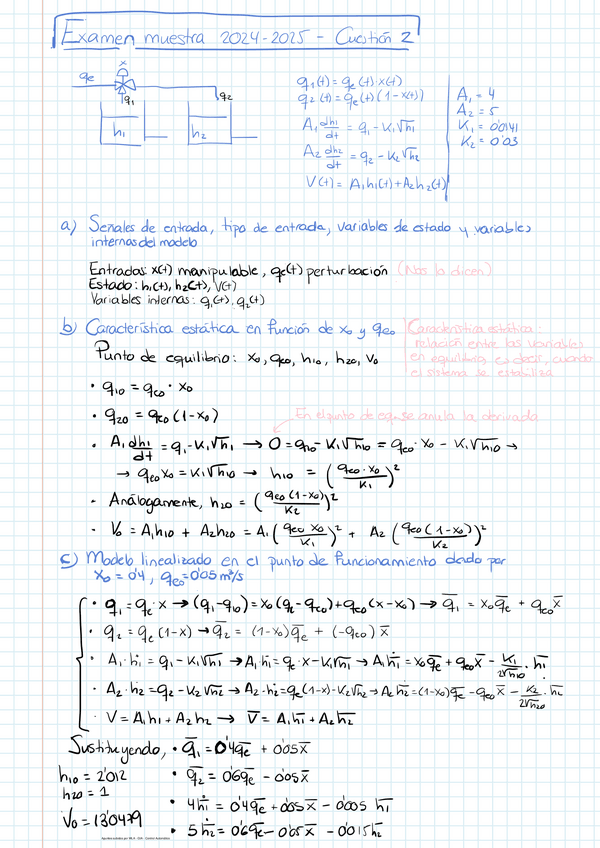 Examen muestra 2024-2025 - Cuestión 2
x
qe
q1
q2
h1
h2
q1(t) = qe(t)·x(t)
q2(t) = qe(t)(1-x(t))
A1 dh1/dt = q1 - K1√h1
A2 dh2/dt = q2 - K2√h2
V(t) = A1h1(t) + A2h2(t)
A1 = 4
A2 = 5
K1 = 0'0141
K2 = 0'03
a) Señales de entrada, tipo de entrada, variables de estado y variables
internas del modelo
Entradas: x(t) manipulable, qe(t) perturbación (Nos la dicen)
Estado: h1(t), h2(t), V(t)
Variables internas: q1(t), q2(t)
b) Característica estática en función de x0 y qe0
Característica estática:
relación entre las variables
en equilibrio, es decir, cuando
el sistema se estabiliza
Punto de equilibrio: x0, qe0, h10, h20, V0
• q10 = qe0 · x0
• q20 = qe0 (1-x0)
En el punto de eq. se anula la derivada
• A1 dh1/dt = q1 - K1√h1 → 0 = q10 - K1√h10 = qe0 · x0 - K1√h10 →
→ qe0 x0 = K1√h10 → h10 = (qe0·x0/K1)²
• Análogamente, h20 = (qe0(1-x0)/K2)²
• V0 = A1h10 + A2h20 = A1(qe0 x0/K1)² + A2(qe0(1-x0)/K2)²
c) Modelo linealizado en el punto de funcionamiento dado por
x0 = 0'4, qe0 = 0'05 m³/s
• q1 = qe·x → (q1-q10) = x0(qe-qe0) + qe0(x-x0) → q̅1 = x0q̅e + qe0x̅
• q2 = qe(1-x) → q̅2 = (1-x0)q̅e + (-qe0)x̅
• A1·ḣ1 = q1 - K1√h1 → A1·ḣ1 = qe·x - K1√h1 → A1ḣ̅1 = x0q̅e + qe0x̅ - K1/2√h10 · h̅1
• A2·ḣ2 = q2 - K2√h2 → A2·ḣ2 = qe(1-x) - K2√h2 → A2ḣ̅2 = (1-x0)q̅e - qe0x̅ - K2/2√h20 · h̅2
• V = A1h1 + A2h2 → V̅ = A1h̅1 + A2h̅2
Sustituyendo, • q̅1 = 0'4q̅e + 0'05x̅
h10 = 2'012
• q̅2 = 0'6q̅e - 0'05x̅
h20 = 1
• 4ḣ̅1 = 0'4q̅e + 0'05x̅ - 0'005 h̅1
V0 = 13'0479
• 5ḣ̅2 = 0'6q̅e - 0'05x̅ - 0'015h̅2